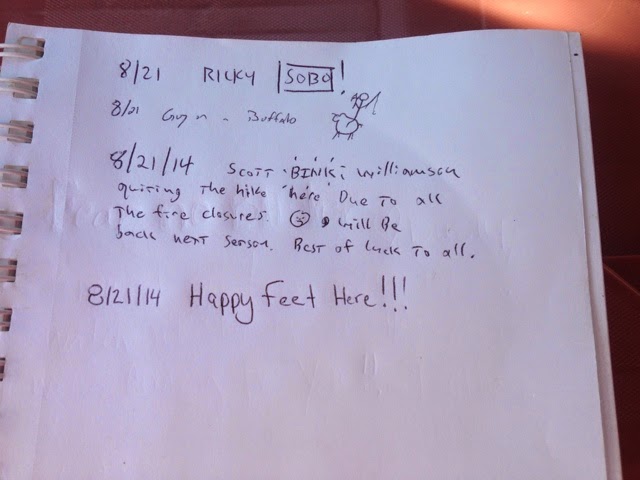 8/21 RICKY SOBO!
8/21 Guy on a Buffalo
8/21/14 SCOTT "BINK" Williamson
quiting The hike "here" Due To all
The fire closures. will Be
back next season. Best of luck To all.
8/21/14 Happy Feet Here!!!